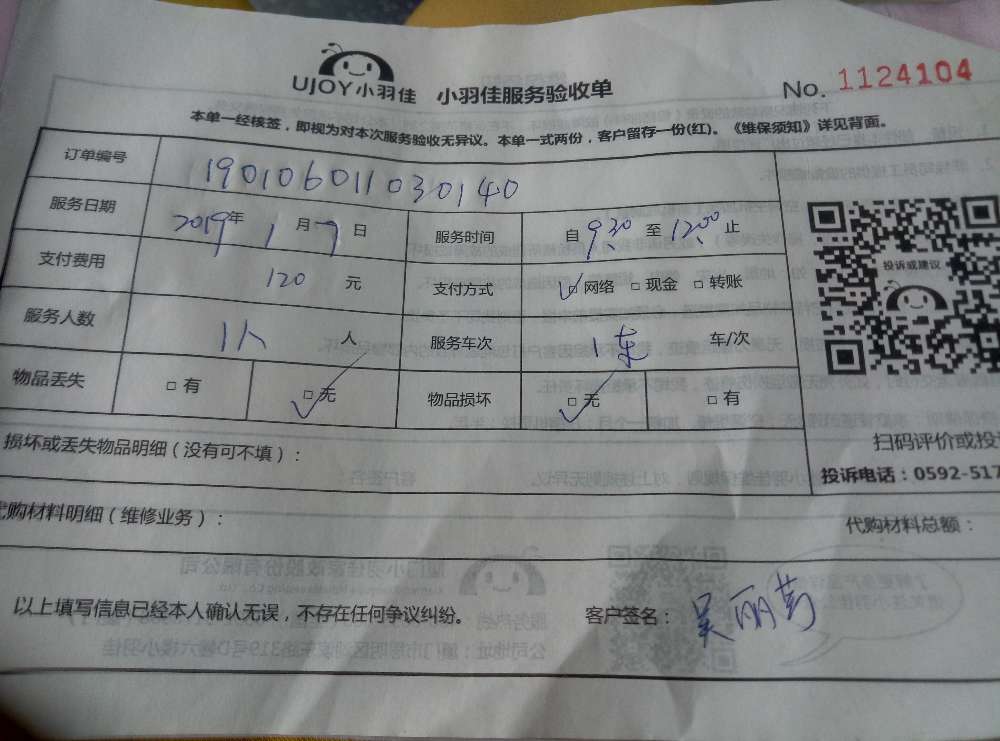 UJOY小羽佳 小羽佳服务验收单 No. 1124104
本单一经核签，即视为对本次服务验收无异议。本单一式两份，客户留存一份(红)。《维保须知》详见背面。
订单编号 190106011030140
服务日期 2019年 1月 7日 服务时间 自9:30至12:00止
支付费用 120 元 支付方式 ☑网络 □现金 □转账
服务人数 1人 人 服务车次 1车 车/次
物品丢失 □有 ☑无 物品损坏 ☑无 □有
投诉或建议
扫码评价或投
投诉电话：0592-517
损坏或丢失物品明细（没有可不填）：
代购材料明细（维修业务）： 代购材料总额：
以上填写信息已经本人确认无误，不存在任何争议纠纷。 客户签名： 吴丽